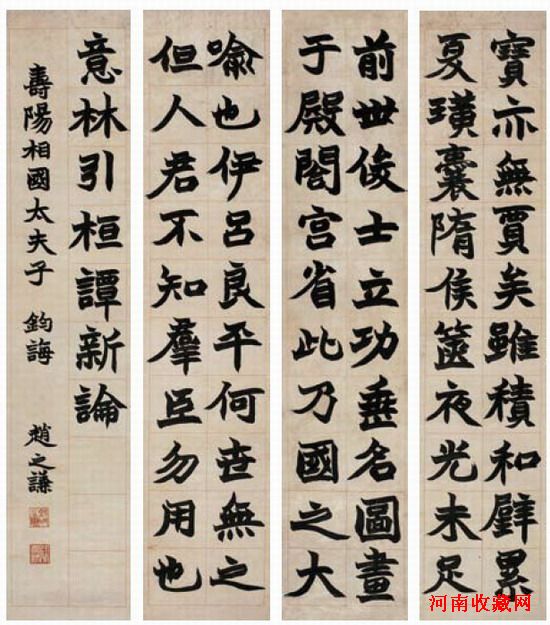 寶亦無賈矣雖積和璧累
夏璜囊隋侯篋夜光未足
前世俊士立功垂名圖畫
于殿閣宮省此乃國之大
喻也伊呂良平何世無之
但人君不知羣臣勿用也
意林引桓譚新論
壽陽相國太夫子 鈞誨 趙之謙
河南收藏网